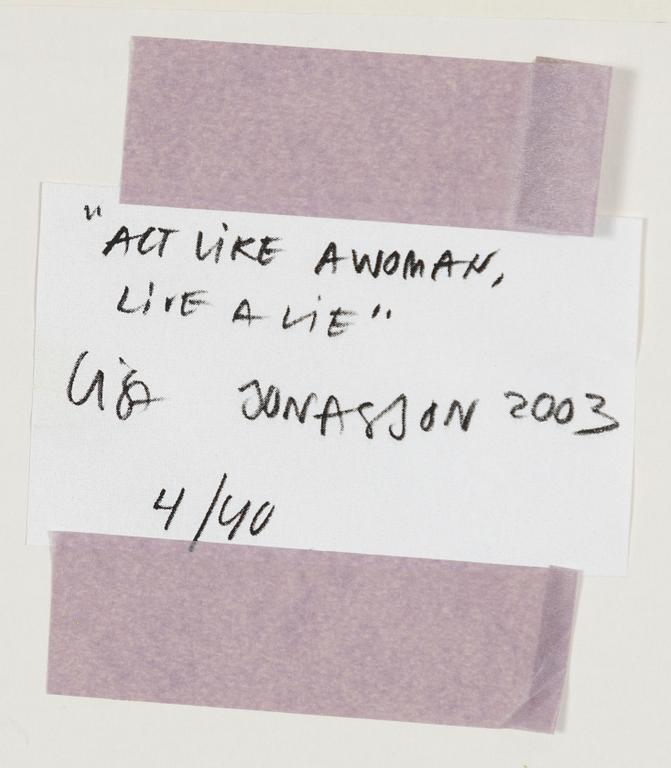 "ACT LIKE A WOMAN,
LIVE A LIE"
Lisa JONASSON 2003
4/40